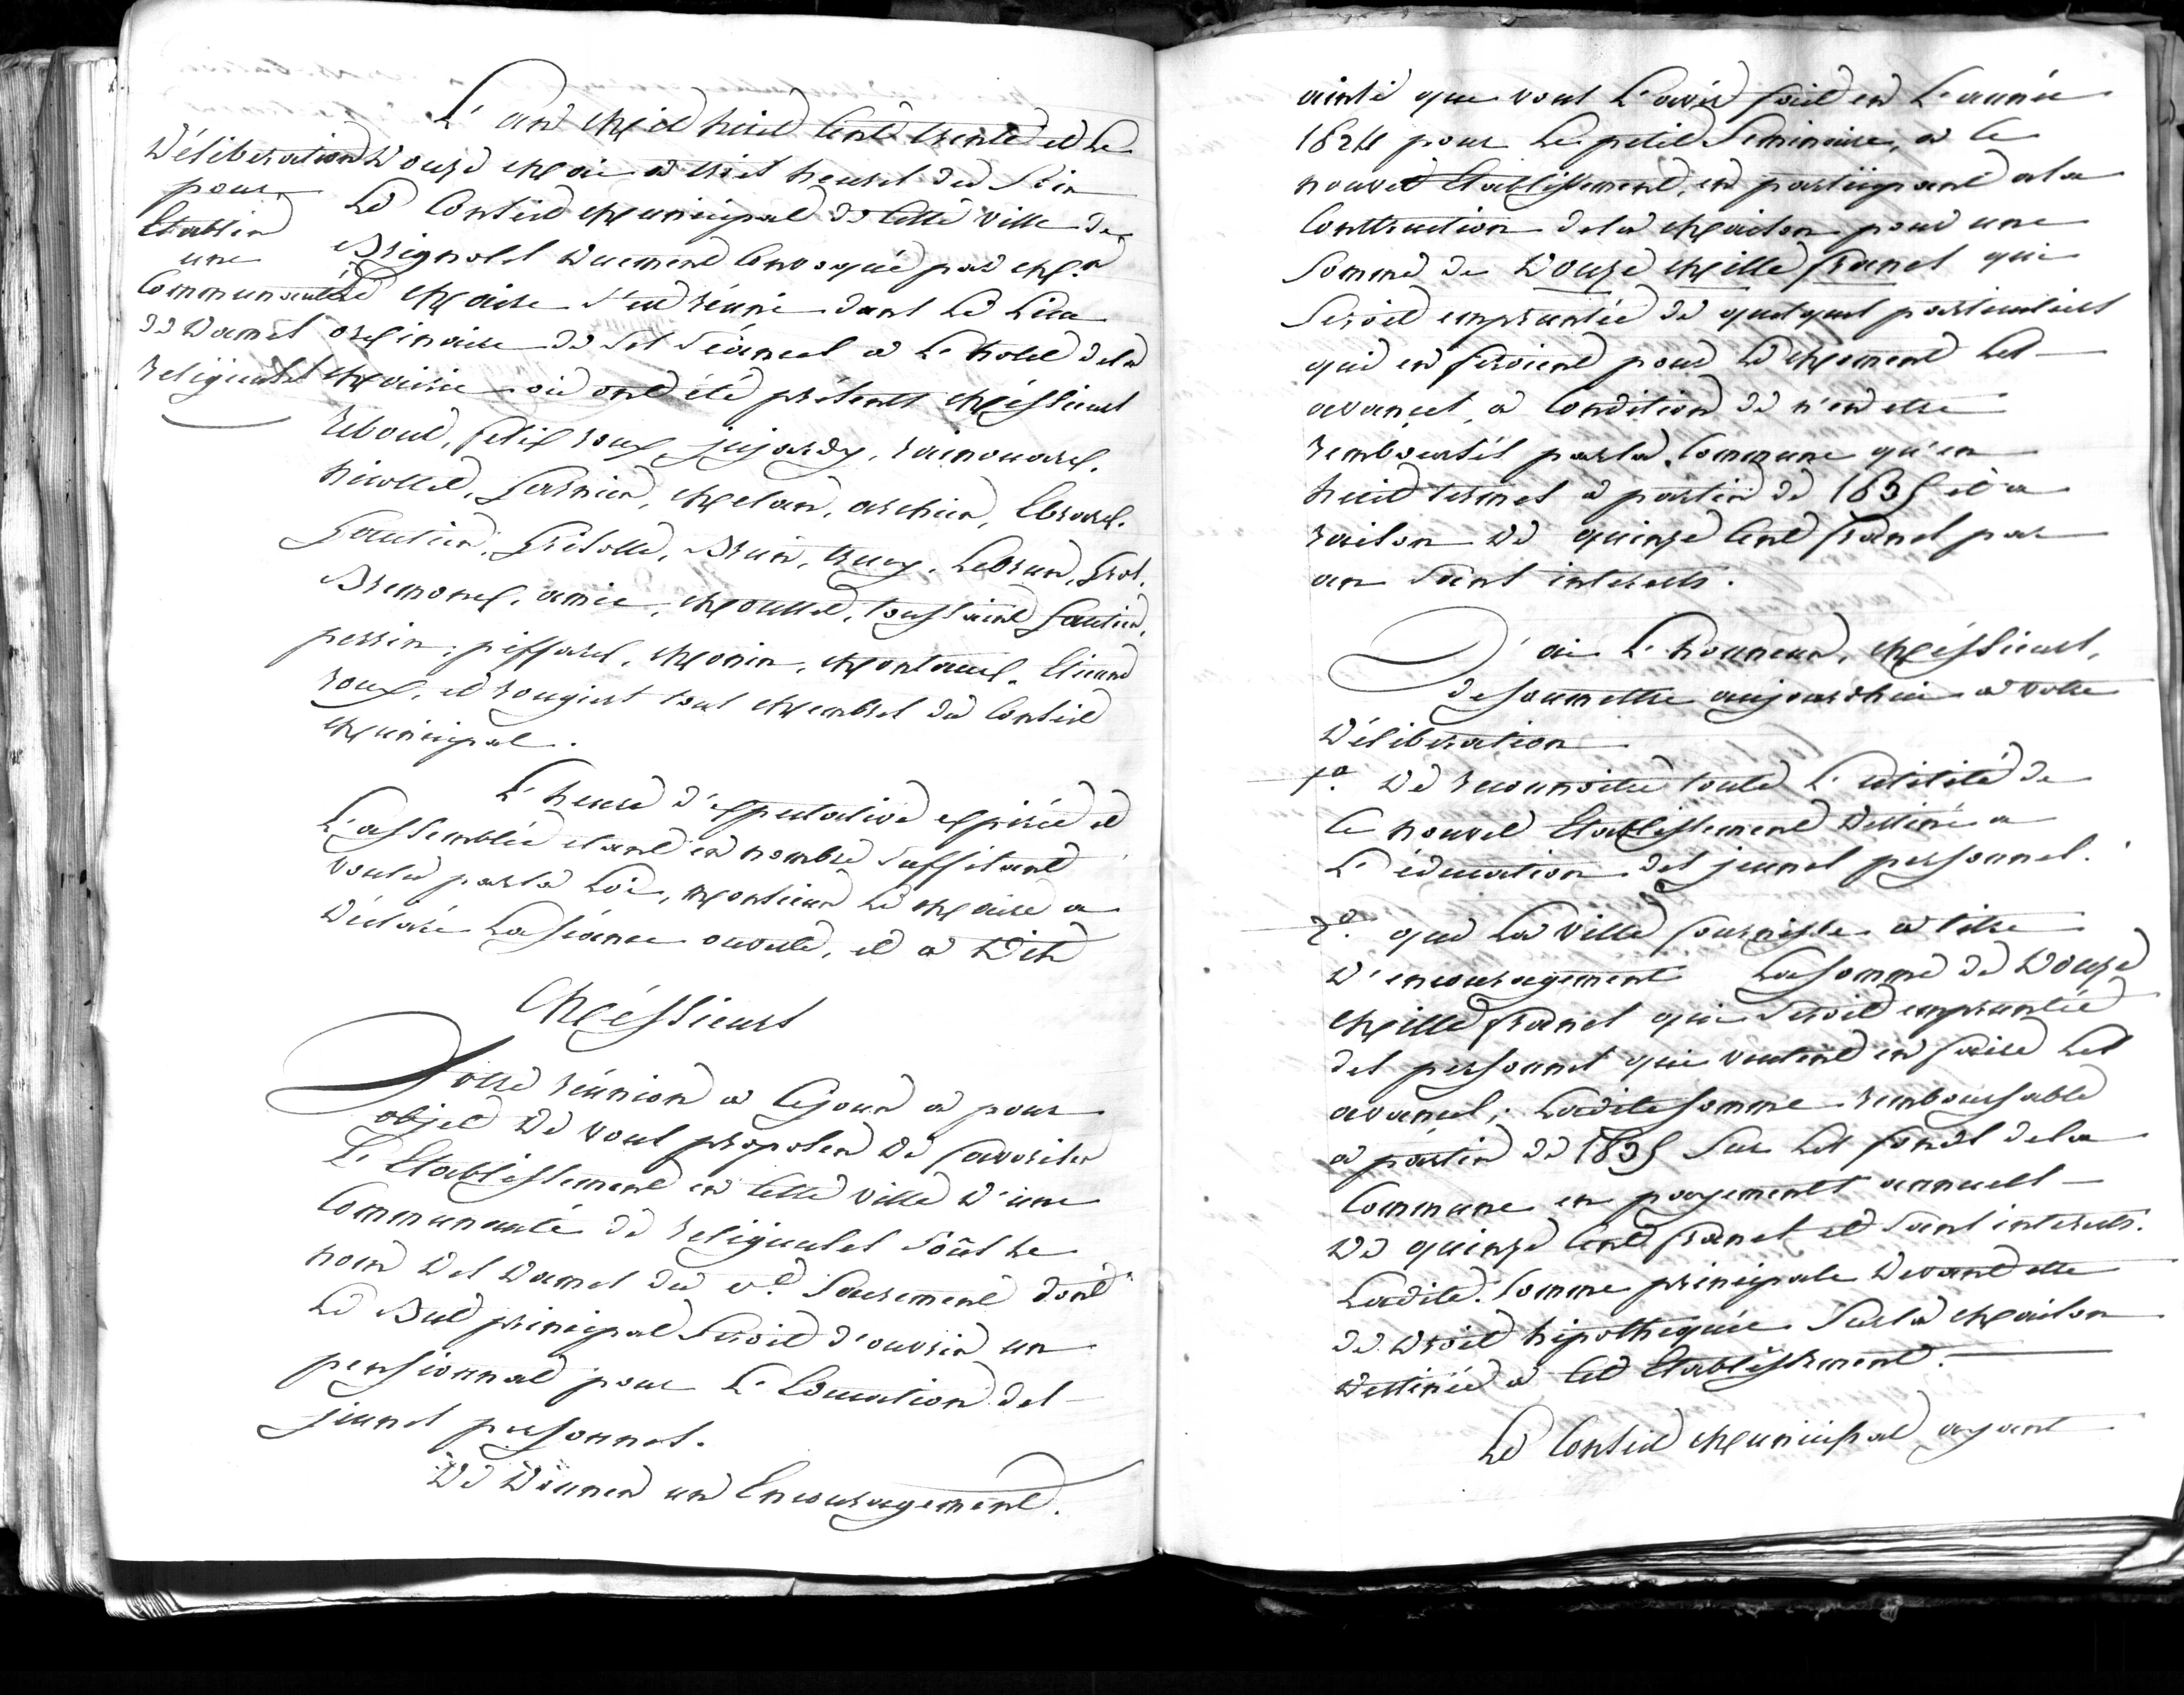 Déliberation
pour
Etablir
une
Communauté
de Dames
religieuses
L'an Mil huit Cent trente et le
Douze Mai a trois heures du Soir
Le Conseil Municipal de Cette Ville de
Brignoles Duement Convoqué par Mr
Le Maire s'est réuni dans Le Lieu
ordinaire de Ses Séances a L'hotel dela
Mairie où ont été présents Méssieurs
Reboul, felix roux, jujardy, rainouard.
Nicollet, Garnier, Melan, archier, Ebrard.
Gautier, Grisolle, Brun, trucy, Lebrun, Gros,
Bremond, amic, Mouttet, toussaint Gautier,
perrin, piffard, Monin, Montaud. Etienne
roux, et rougiers tous Membres du Conseil
Municipal.
L'heure d'expectative expirée et
L'assemblée etant en nombre Suffisant
voulu parla Loi, Monsieur Le Maire a
Déclaré La Séance ouverte, et a Dit
Méssieurs
Votre réunion a Cejour a pour
objet De vous proposer De favoriser
L'Etablissement en Cette Ville D'une
Communauté de religieuses Sous le
nom Des Dames du St Sacrement dont
Le But principal Seroit d'ouvrir un
pensionnat pour L'Education des
jeunes personnes.
De Donner un Encouragement.
ainsi que vous L'avez fait en L'année
1824 pour Le petit Seminaire, a Ce
nouvel Etablissement, en participant ala
Construction dela Maison pour une
Somme de Douze Mille francs qui
Seroit empruntée de quelques particuliers
qui en feroient pour Le Moment Les
avances, a Condition de n'en etre
remboursés parla Commune qu'en
huit termes a partir de 1835 et a
raison De quinze Cent francs par
an Sans interets.
J'ai L'honneur, Méssieurs,
de Soumettre aujourdhui a votre
Déliberation
1º. De reconnoitre toute L'utilité de
Ce nouvel Etablissement Destiné a
L'éducation des jeunes personnes.
2º. que La Ville fournisse a titre
D'encouragement La Somme de Douze
Mille francs qui Seroit empruntée
des personnes qui veulent en faire Les
avances; Ladite Somme remboursable
a partir de 1835 Sur Les fonds dela
Commune en payements annuels
De quinze Cent francs et Sans interets.
Ladite Somme principale Devant etre
de Droit hipothequée Sur la Maison
Destinée a Cet Etablissement.
Le Conseil Municipal ayant